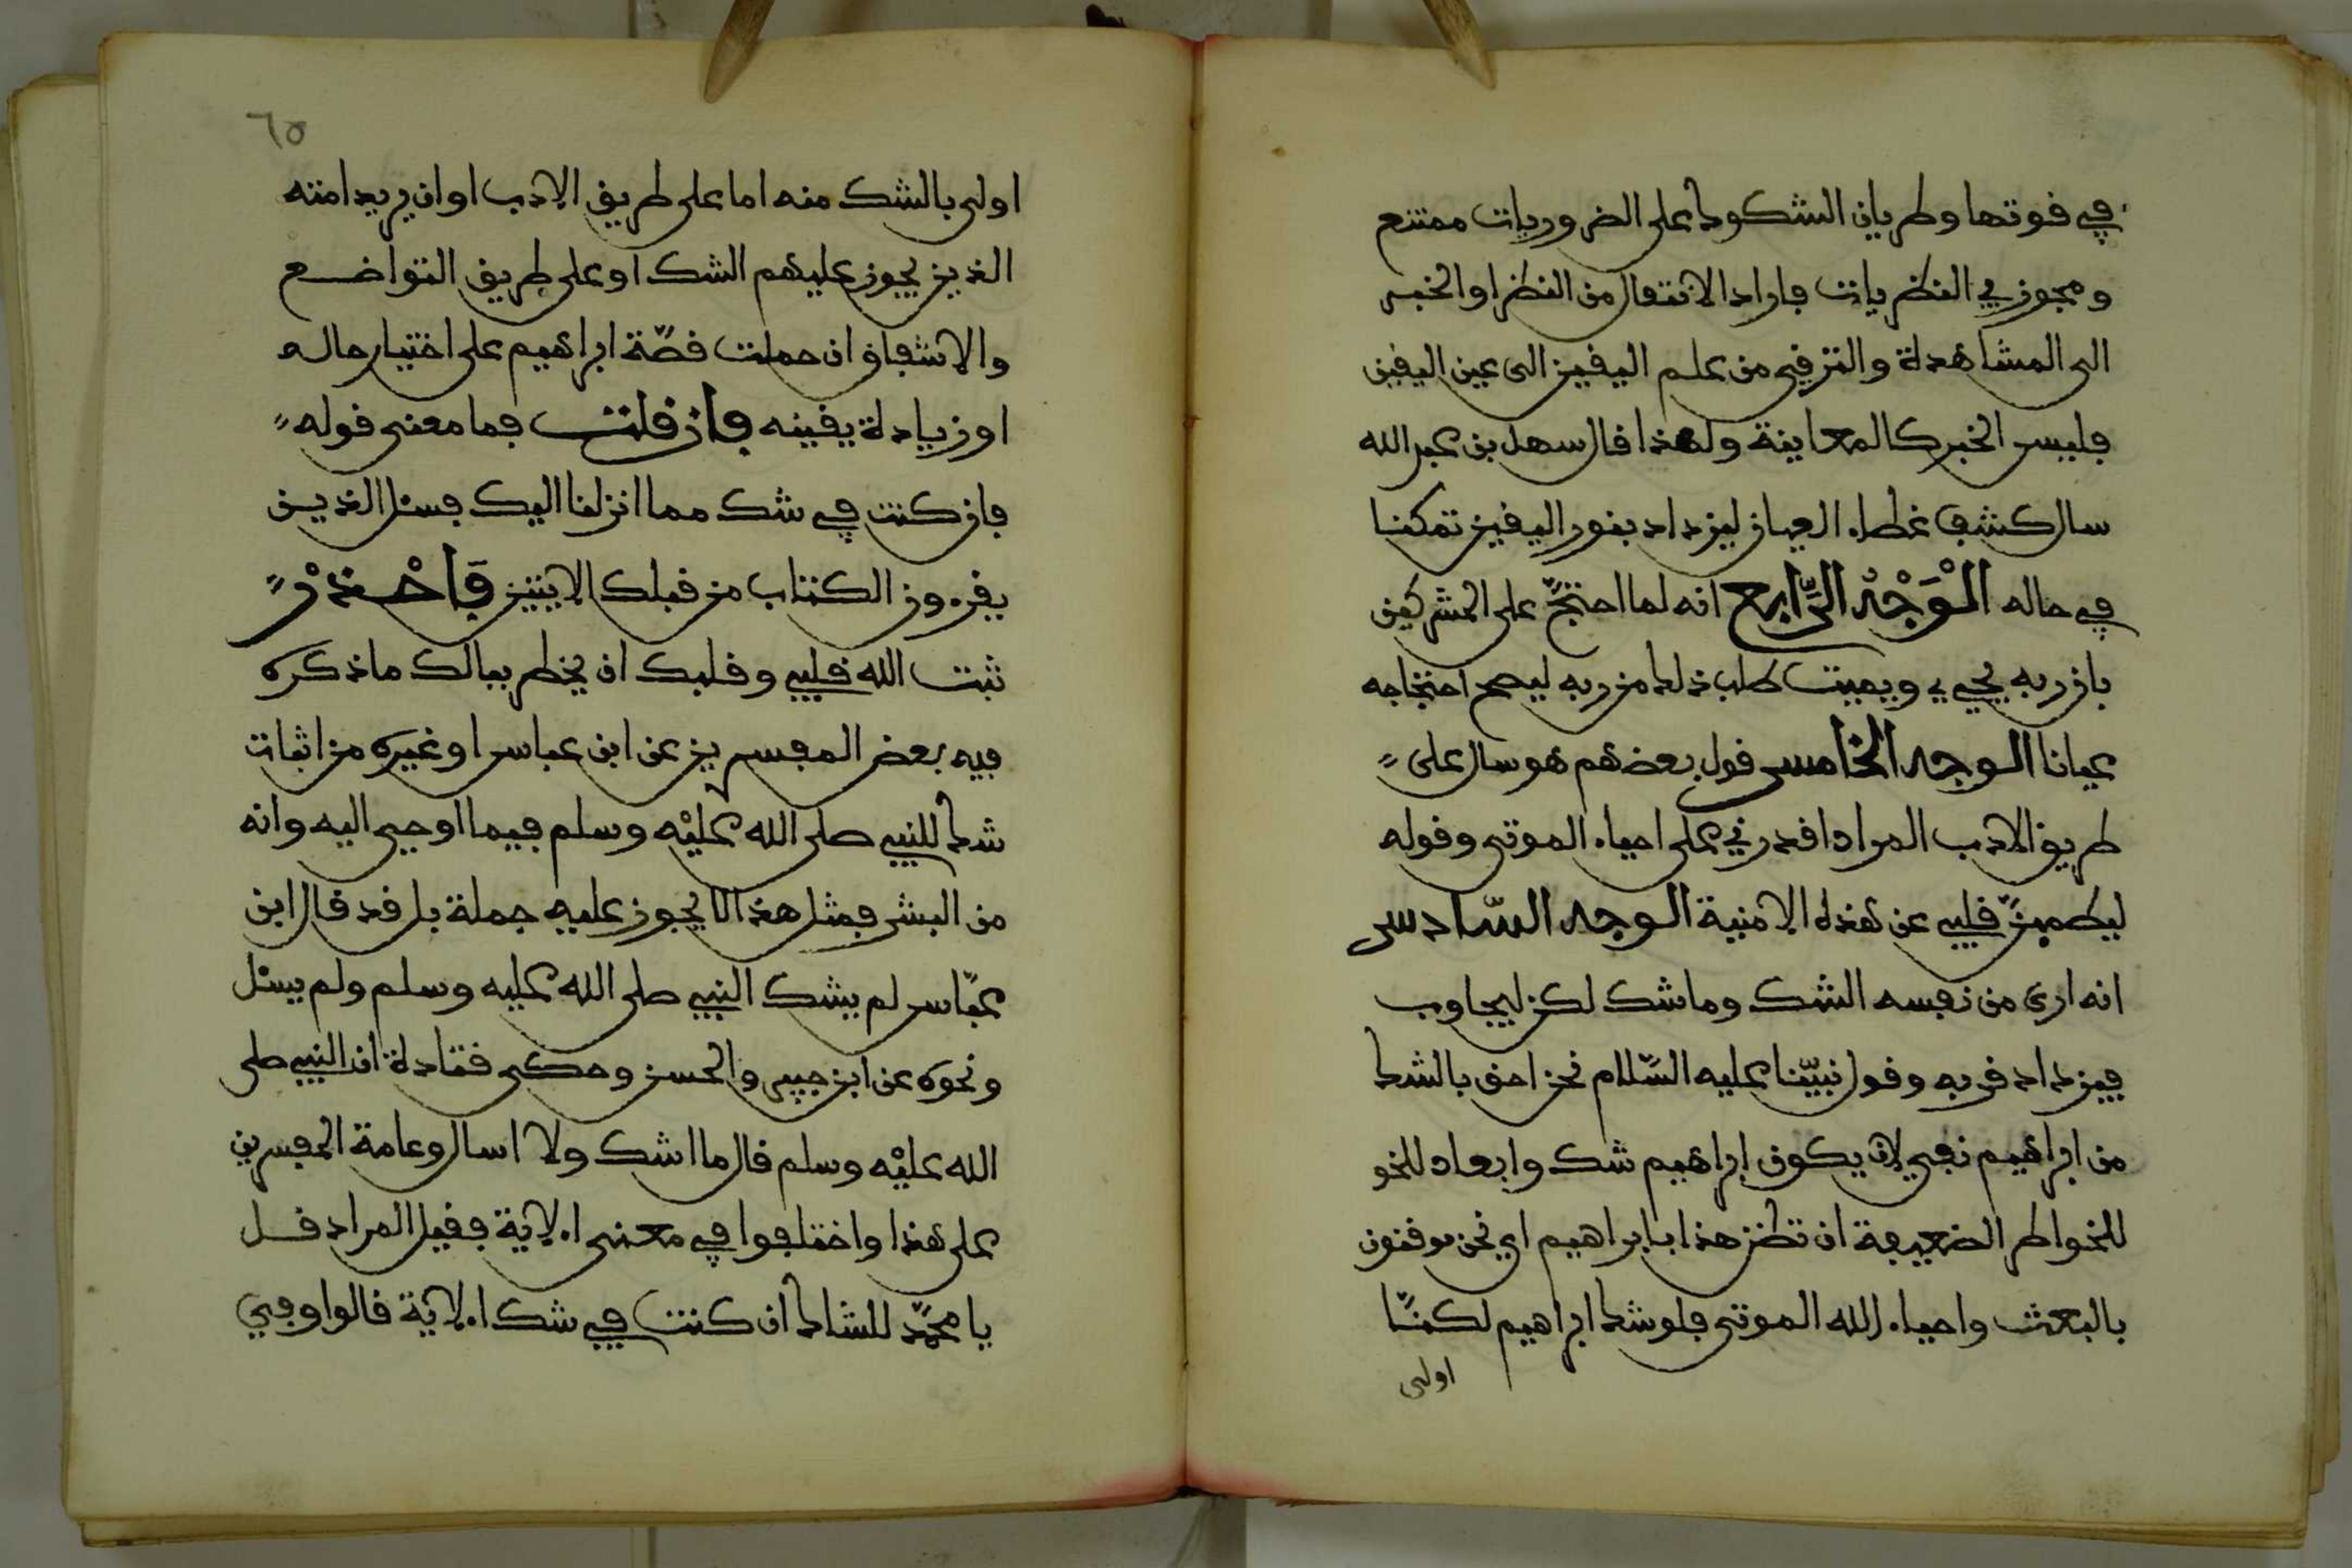 في قوتها وطريان الشكوك على الضروريات ممتنع
ومجوز في النظريات فاراد الانتقال من النظر او الخبر
الى المشاهدة والترقي من علم اليقين الى عين اليقين
فليس الخبر كالمعاينة ولهذا قال سهل بن عبد الله
سال كشف غطاء العيان ليزداد بنور اليقين تمكنا
في حاله الْوَجْهُ الرَّابع انه لما احتجّ على المشركين
بان ربه يحيي ويميت طلب ذلك من ربه ليصح احتجاجه
عيانا الوجه الخامس قول بعضهم هو سال على
طريق الادب المراد اقدرني على احياء الموتى وقوله
ليطمينّ قلبي عن هذه الامنية الوجه السّادس
انه ارى من نفسه الشك وما شك لكن ليجاوب
فيزداد قربه وقول نبيّنا عليه السّلام نحن احق بالشك
من ابراهيم نفي لان يكون ابراهيم شك وابعاد للخو
للخواطر الضعيفة ان تظن هذا بابراهيم اي نحن موقنون
بالبعث واحياء الله الموتى فلو شك ابراهيم لكنّا
اولى
٦٥
اولى بالشك منه اما على طريق الادب او ان يريد امته
الذين يجوز عليهم الشك او على طريق التواضع
والاشفاق ان حملت قصّة ابراهيم على اختبار حاله
او زيادة يقينه فان قلت فما معنى قوله
فان كنت في شك مما انزلنا اليك فسئل الذين
يقرءون الكتاب من قبلك الايتين فَاحْذرْ
ثبت الله قلبي وقلبك ان يخطر ببالك ما ذكره
فيه بعض المفسرين عن ابن عباس او غيره من اثبات
شك للنبي صلى الله عليْه وسلم فيما اوحي اليه وانه
من البشر فمثل هذا لا يجوز عليه جملة بل قد قال ابن
عبّاس لم يشك النبي صلى الله عليه وسلم ولم يسئل
ونحوه عن ابن جبير والحسن وحكى قتادة ان النبي صلى
الله عليْه وسلم قال ما اشك ولا اسال وعامة المفسرين
على هذا واختلفوا في معنى الاية فقيل المراد قل
يا محمّد للشاك ان كنت في شك الاية قالوا وفي